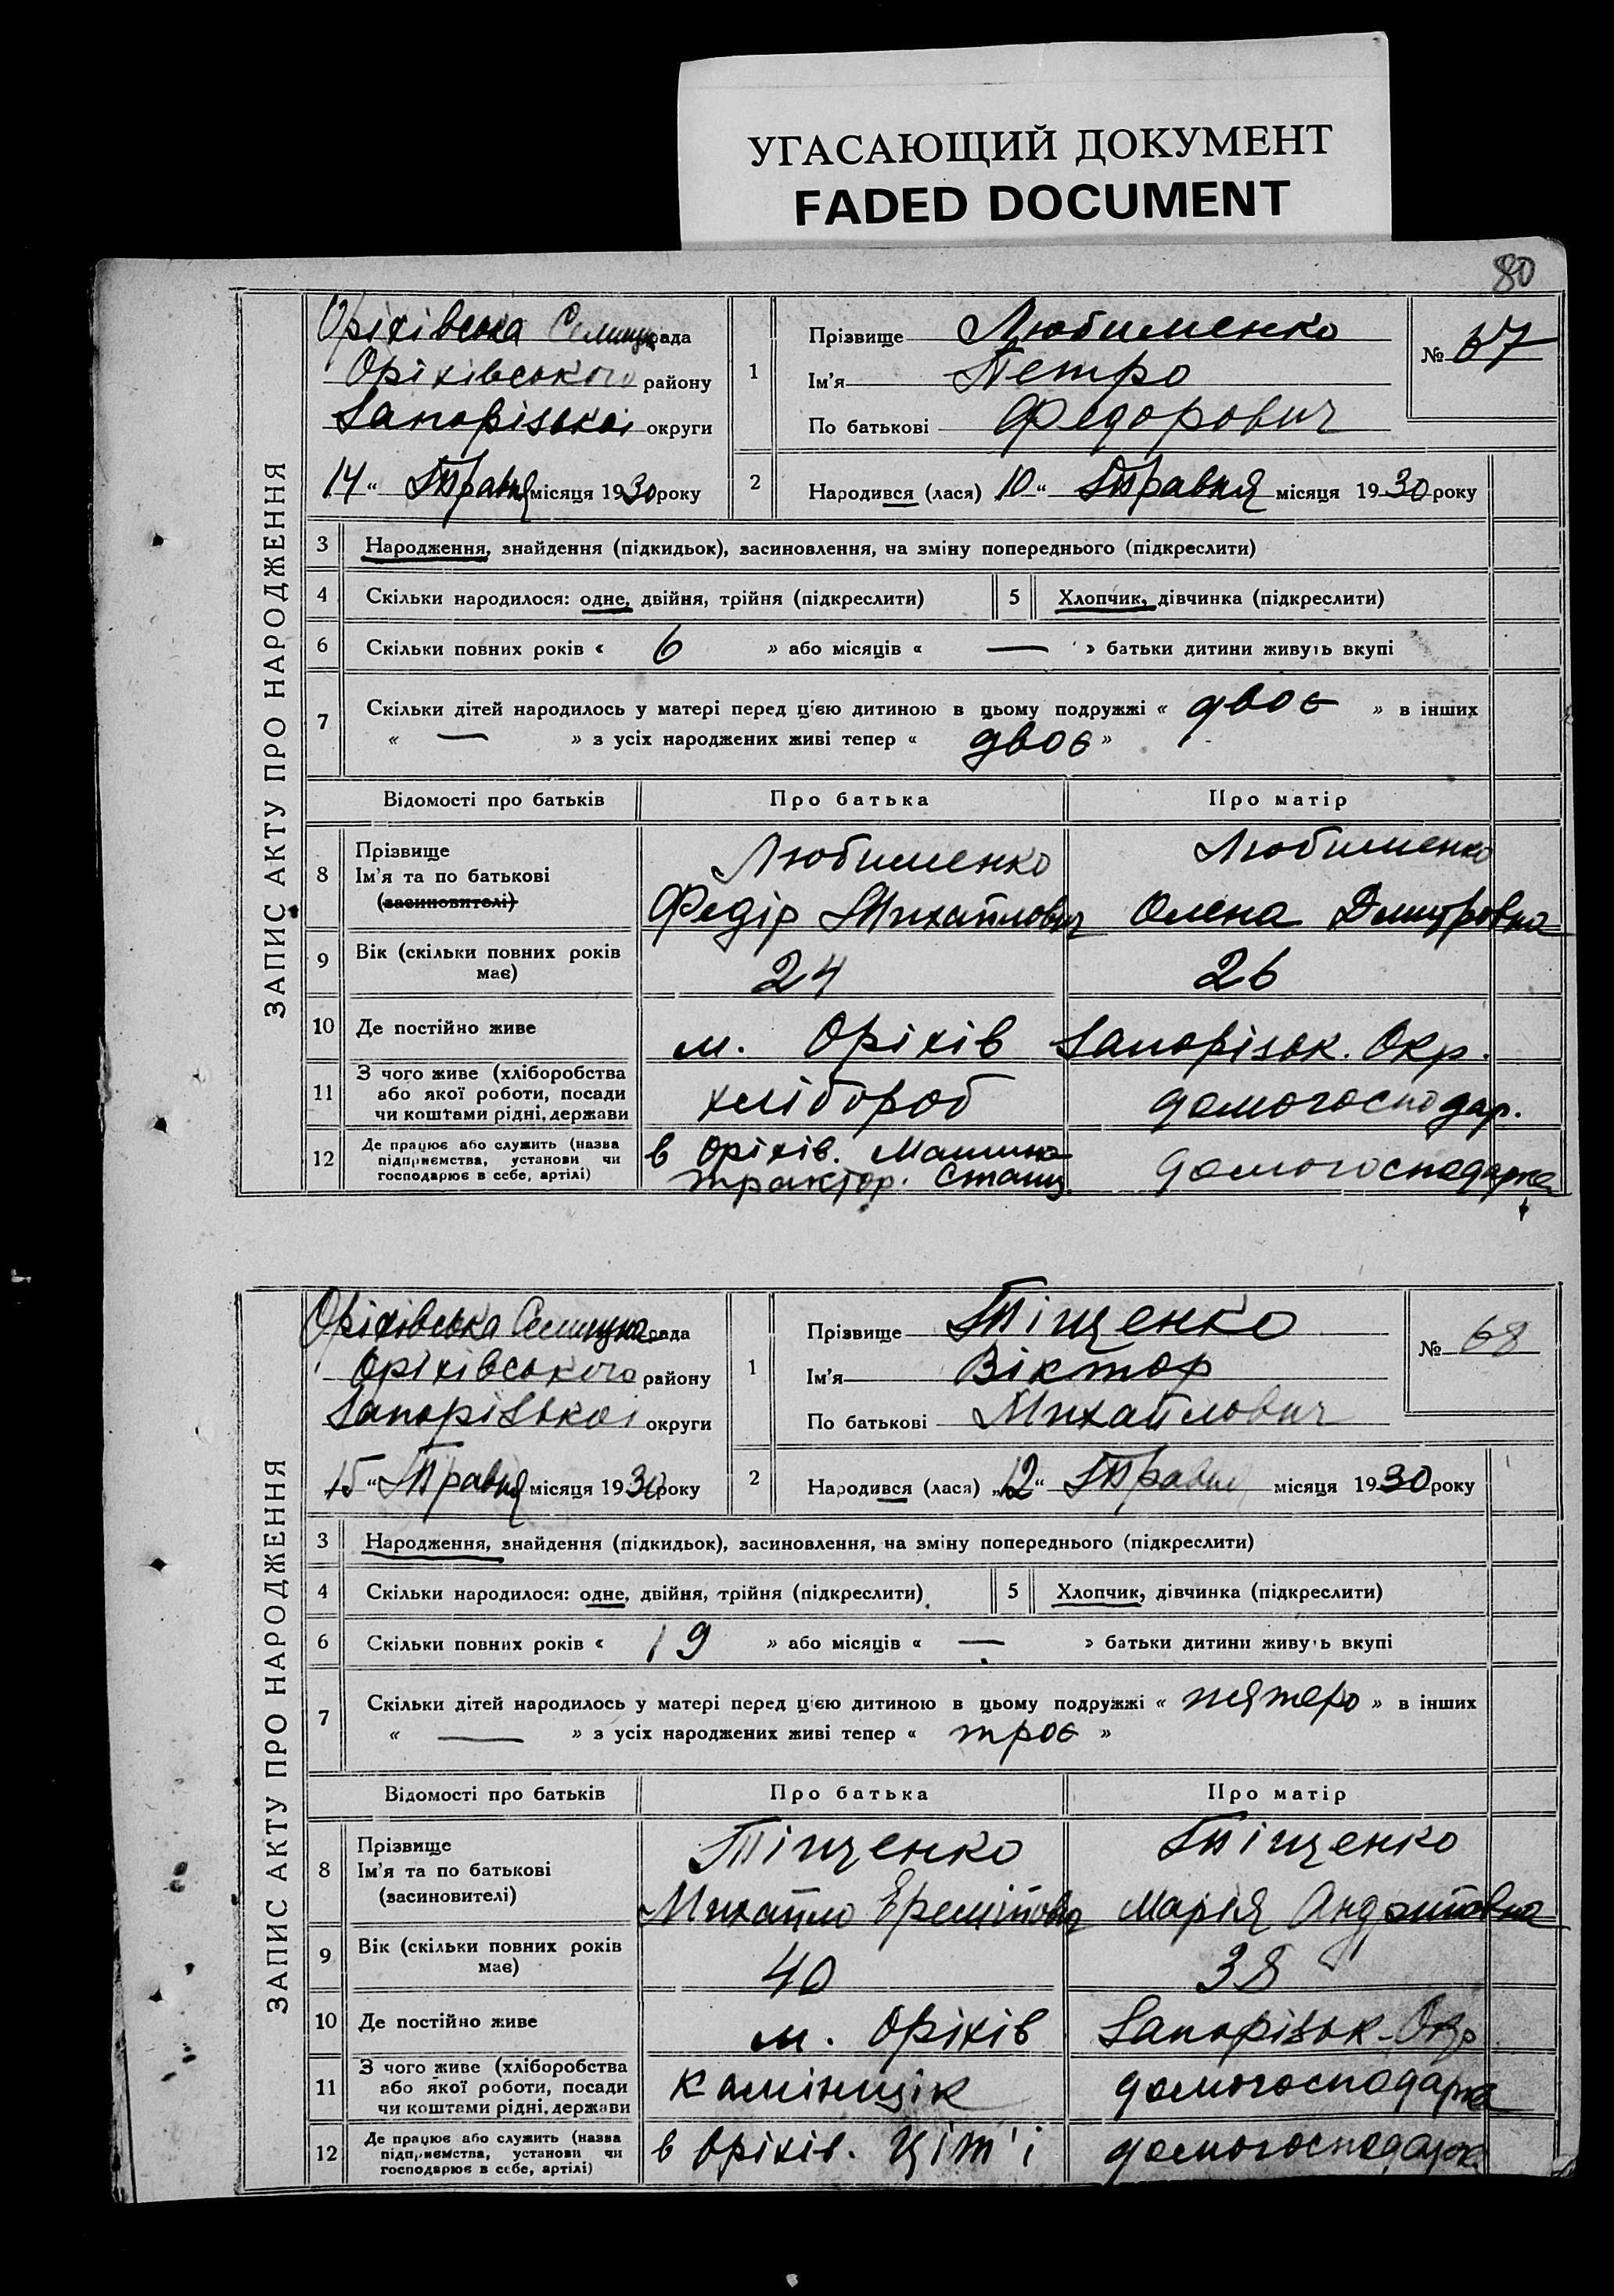 УГАСАЮЩИЙ ДОКУМЕНТ
FADED DOCUMENT
80
ЗАПИС АКТУ ПРО НАРОДЖЕННЯ
Оріхівська Селищн рада
Оріхівського району
Запорізької округи
14 “ Травня місяця 1930 року
1
Прізвище Любименко
Ім'я Петро
По батькові Федорович
№ 67
2
Народився (лася) 10 “ Травня місяця 1930 року
3 Народження, знайдення (підкидьок), засиновлення, на зміну попереднього (підкреслити)
4 Скільки народилося: одне, двійня, трійня (підкреслити) 5 Хлопчик, дівчинка (підкреслити)
6 Скільки повних років « 6 » або місяців « — » батьки дитини живуть вкупі
7 Скільки дітей народилось у матері перед цією дитиною в цьому подружжі « двоє » в інших
« — » з усіх народжених живі тепер « двоє »
Відомості про батьків Про батька Про матір
8 Прізвище Ім'я та по батькові (засиновителі)
Любименко Любименко
Федір Михайлович Олена Дмитровна
9 Вік (скільки повних років має) 24 26
10 Де постійно живе м. Оріхів Запорізьк. Окр.
11 З чого живе (хліборобства або якої роботи, посади чи коштами рідні, держави хлібороб домогосподар.
12 Де працює або служить (назва підприємства, установи чи господарює в себе, артілі)
в Оріхів. Машино домогосподарка
трактор. Станц.
ЗАПИС АКТУ ПРО НАРОДЖЕННЯ
Оріхівська Селищна рада
Оріхівського району
Запорізької округи
15 “ Травня місяця 1930 року
1
Прізвище Тіщенко
Ім'я Віктор
По батькові Михайлович
№ 68
2
Народився (лася) „12“ Травня місяця 1930 року
3 Народження, знайдення (підкидьок), засиновлення, на зміну попереднього (підкреслити)
4 Скільки народилося: одне, двійня, трійня (підкреслити) 5 Хлопчик, дівчинка (підкреслити)
6 Скільки повних років « 19 » або місяців « — » батьки дитини живуть вкупі
7 Скільки дітей народилось у матері перед цією дитиною в цьому подружжі « пятеро » в інших
« — » з усіх народжених живі тепер « троє »
Відомості про батьків Про батька Про матір
8 Прізвище Ім'я та по батькові (засиновителі)
Тіщенко Тіщенко
Михайло Марія
9 Вік (скільки повних років має) 40 38
10 Де постійно живе м. Оріхів Запорізьк. Окр
11 З чого живе (хліборобства або якої роботи, посади чи коштами рідні, держави камінщік домогосподарка
12 Де працює або служить (назва підприємства, установи чи господарює в себе, артілі)
в Оріхів. домогосподарк.